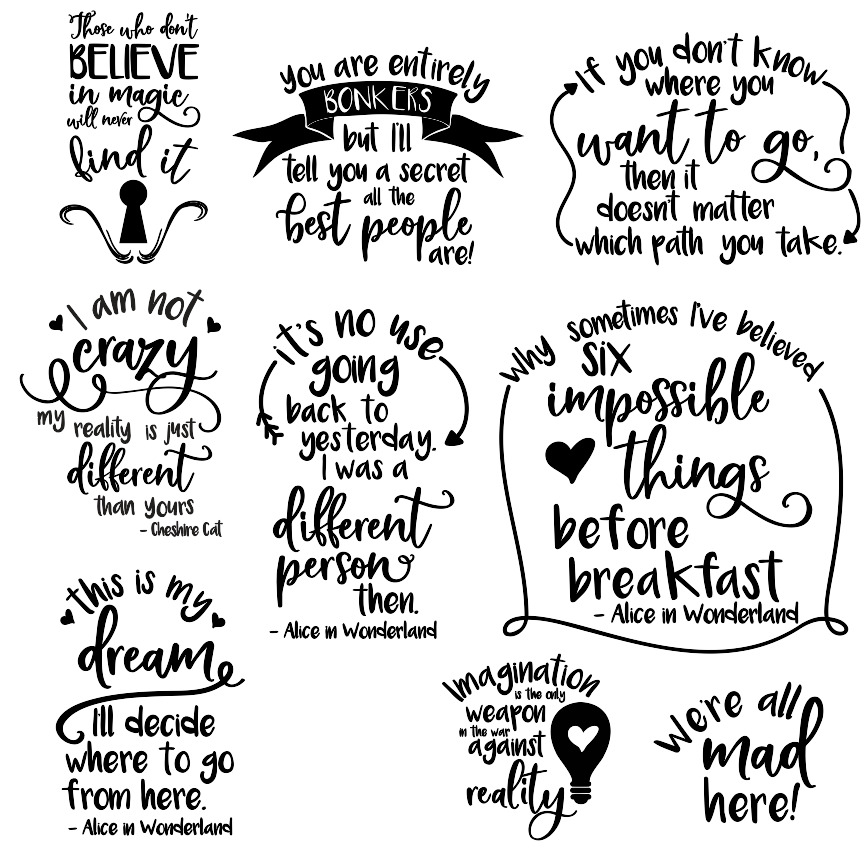 Those who don't
BELIEVE
in magic
will never
find it
you are entirely
BONKERS
but I'll
tell you a secret
all the
best people
are!
If you don't know
where you
want to go,
then it
doesn't matter
which path you take.
I am not
crazy
my reality is just
different
than yours
- Cheshire Cat
it's no use
going
back to
yesterday.
I was a
different
person
then.
- Alice in Wonderland
Why sometimes I've believed
six
impossible
things
before
breakfast
- Alice in Wonderland
this is my
dream
I'll decide
where to go
from here.
- Alice in Wonderland
Imagination
is the only
weapon
in the war
against
reality
We're all
mad
here!